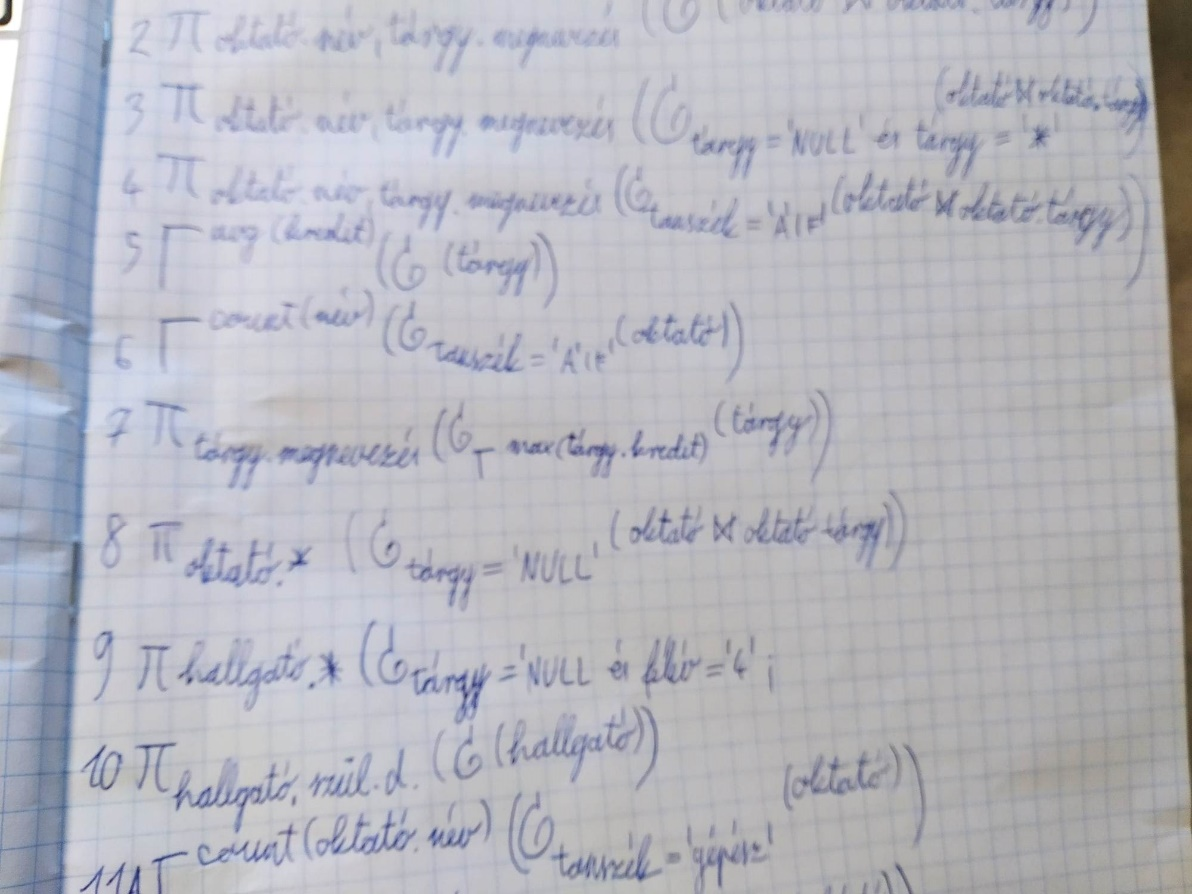 2 π oktató.név, tárgy.megnevezés (σ (oktató ⋈ oktató.tárgy))
3 π oktató.név, tárgy.megnevezés (σ tárgy = 'NULL' és tárgy = '*' (oktató ⋈ oktató.tárgy))
4 π oktató.név, tárgy.megnevezés (σ tanszék = 'ÁIF' (oktató ⋈ oktató.tárgy))
5 Γ avg(kredit) (σ (tárgy))
6 Γ count(név) (σ tanszék = 'ÁIF' (oktató))
7 π tárgy.megnevezés (σ Γ max(tárgy.kredit) (tárgy))
8 π oktató.* (σ tárgy = 'NULL' (oktató ⋈ oktató-tárgy))
9 π hallgató.* (σ tárgy = 'NULL és félév = '4' ;
10 π hallgató, szül.d. (σ (hallgató))
11 Γ count(oktató.név) (σ tanszék = 'gépész' (oktató))